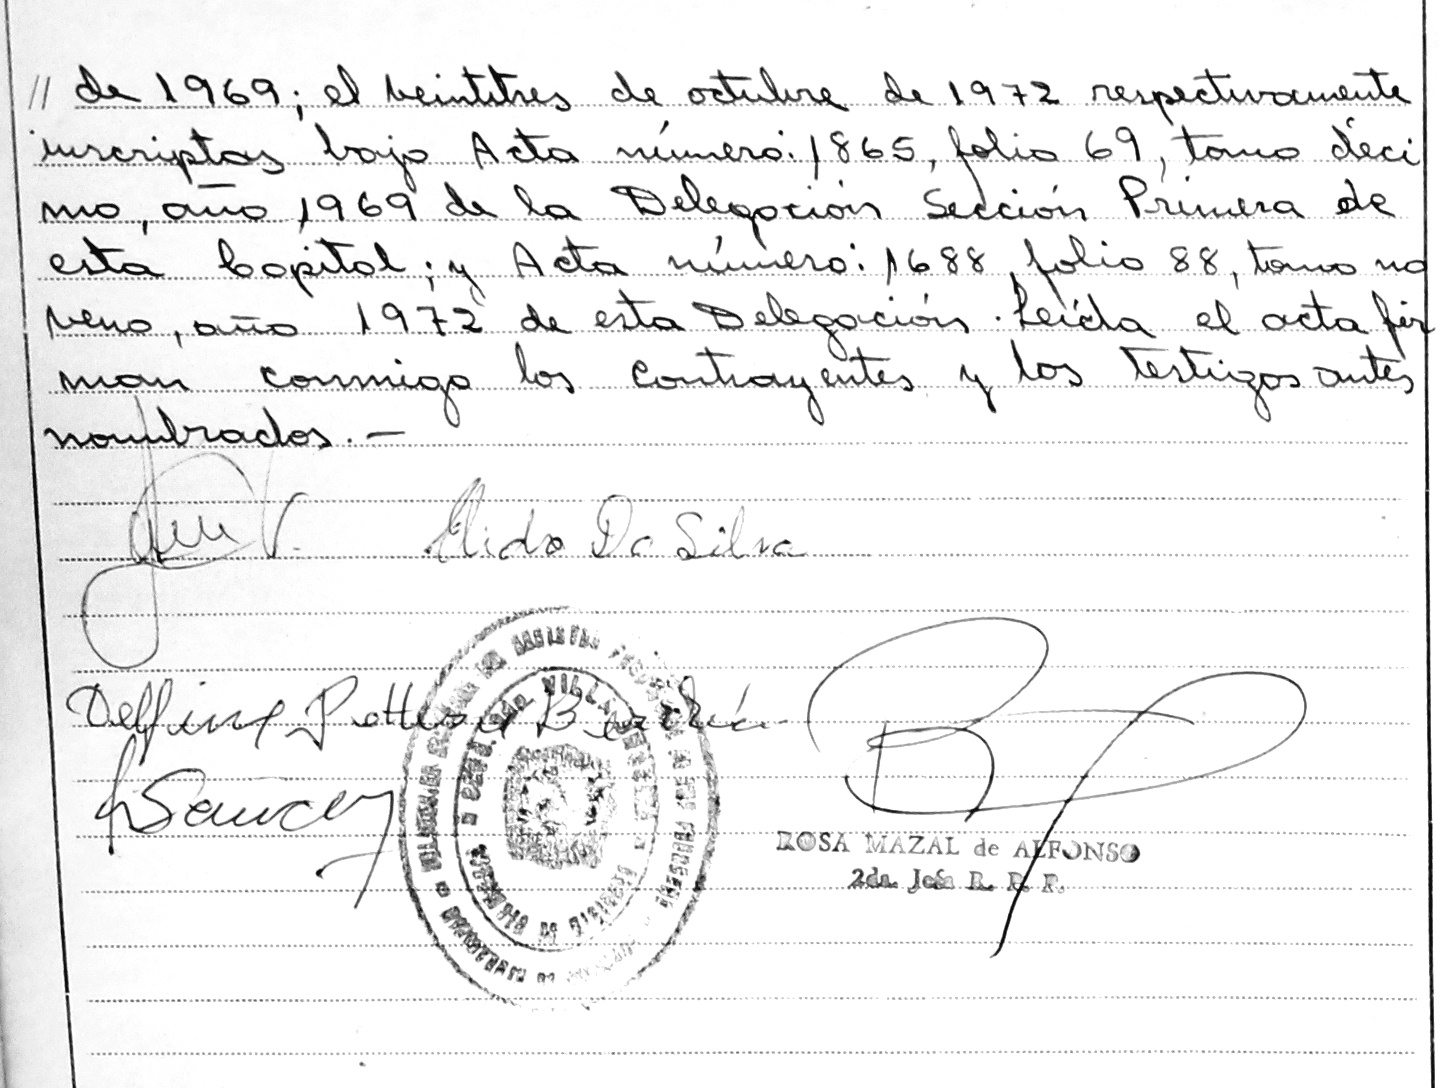 // de 1969; el veintitres de octubre de 1972 respectivamente
inscriptas bajo Acta número: 1865, folio 69, tomo déci
mo, año 1969 de la Delegación Sección Primera de
esta Capital; y Acta número: 1688, folio 88, tomo no
veno, año 1972 de esta Delegación. Leída el acta fir
man conmigo los contrayentes y los testigos antes
nombrados. —
Elida Da Silva
Delfina
ROSA MAZAL de ALFONSO
2da. Jefa R. P. P.